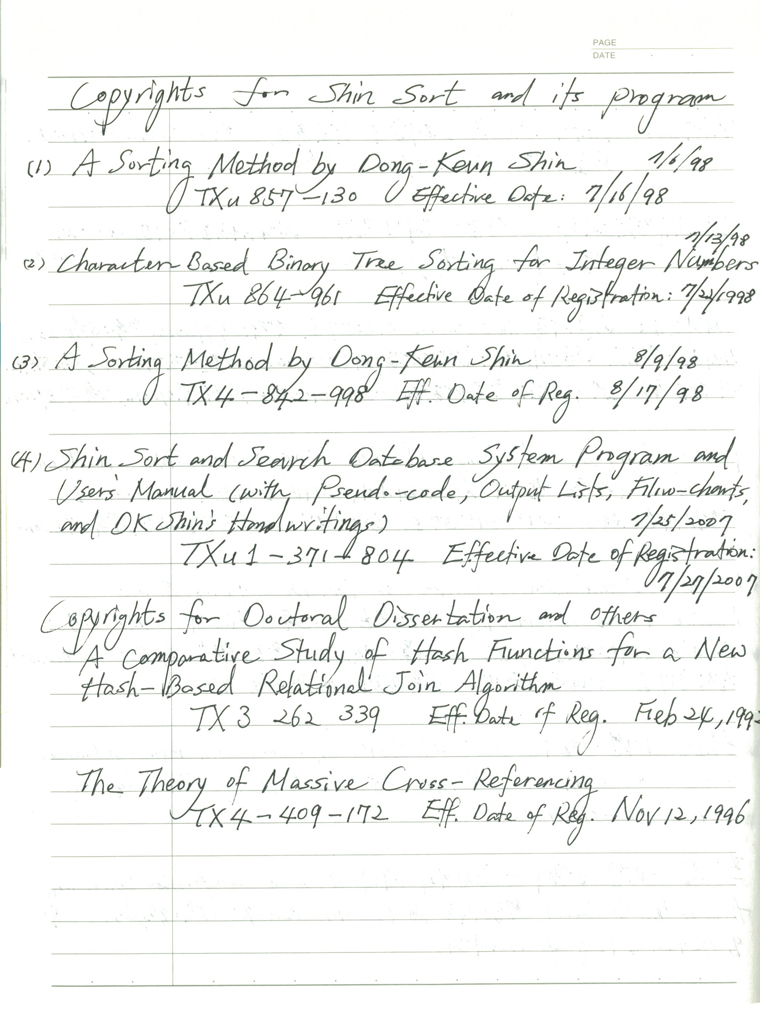 PAGE
DATE
Copyrights for Shin Sort and its program
(1) A Sorting Method by Dong-Keun Shin 7/6/98
TXu 857-130 Effective Date: 7/16/98
7/13/98
(2) Character Based Binary Tree Sorting for Integer Numbers
TXu 864-961 Effective Date of Registration: 7/22/1998
(3) A Sorting Method by Dong-Keun Shin 8/9/98
TX4-842-998 Eff. Date of Reg. 8/17/98
(4) Shin Sort and Search Database System Program and
User's Manual (with Pseudo-code, Output Lists, Flow-charts,
and DK Shin's Handwritings) 7/25/2007
TXu1-371-804 Effective Date of Registration:
7/27/2007
Copyrights for Doctoral Dissertation and others
A Comparative Study of Hash Functions for a New
Hash-Based Relational Join Algorithm
TX 3 262 339 Eff. Date of Reg. Feb 24, 1992
The Theory of Massive Cross-Referencing
TX4-409-172 Eff. Date of Reg. Nov 12, 1996